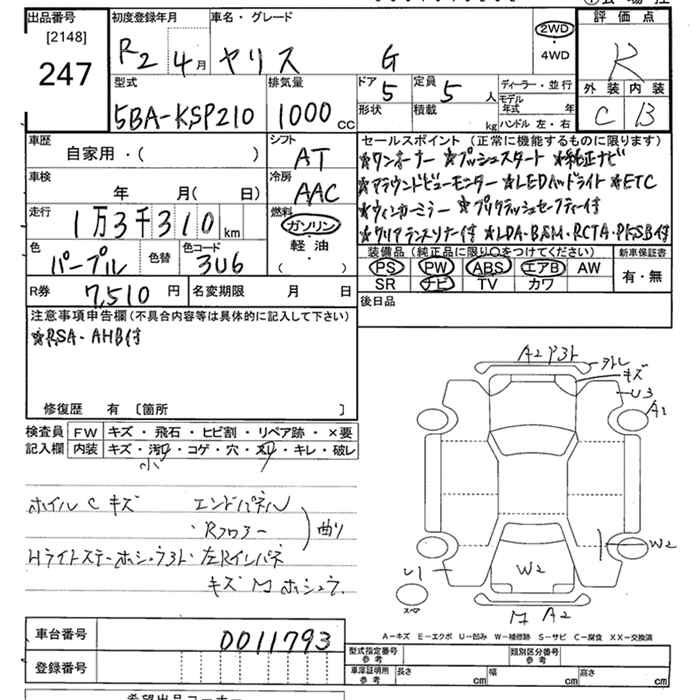 出品番号 初度登録年月 車名・グレード 評価点
[2148]
247 R2 4月 ヤリス G 2WD・4WD R
外装 内装
C B
型式 排気量 ドア 定員 ディーラー・並行
5BA-KSP210 1000cc 5 5人 モデル年式 年
形状 積載 kg ハンドル 左・右
車歴 シフト セールスポイント (正常に機能するものに限ります)
自家用・( ) AT ★ワンオーナー ★プッシュスタート ★純正ナビ
車検 冷房 ★アラウンドビューモニター ★LEDヘッドライト ★ETC
年 月( 日) AAC ★ウィンカーミラー ★プリクラッシュセーフティー付
走行 燃料 ★クリアランスソナー付 ★LDA・BSM・RCTA・PKSB付
1万3千310km ガソリン・軽油・( )
色 色替 色コード 装備品 (純正品に限り○をつけてください) 新車保証書
パープル 3U6 PS PW ABS エアB AW 有・無
SR ナビ TV カワ
R券 7,510円 名変期限 月 日 後日品
注意事項申告欄(不具合内容等は具体的に記入して下さい)
★RSA・AHB付
修復歴 有 〔箇所 〕
検査員記入欄 FW キズ・飛石・ヒビ割・リペア跡・×要
内装 キズ・汚れ・コゲ・穴・スレ・キレ・破レ
小
ホイルCキズ エンドパネル
・Rフロアー 曲り
Hライトステーホシュウ跡・左Rインパネ
キズMホシュウ
A2 P跡 外レ
キズ
U3
A1
W2
U1 W2
スペア
M A2
A-キズ E-エクボ U-凹み W-補修跡 S-サビ C-腐食 XX-交換済
車台番号 0011793
型式指定番号 参考 類別区分番号 参考
登録番号 車庫証明用 参考 長さ cm 幅 cm 高さ cm
希望出品コーナー